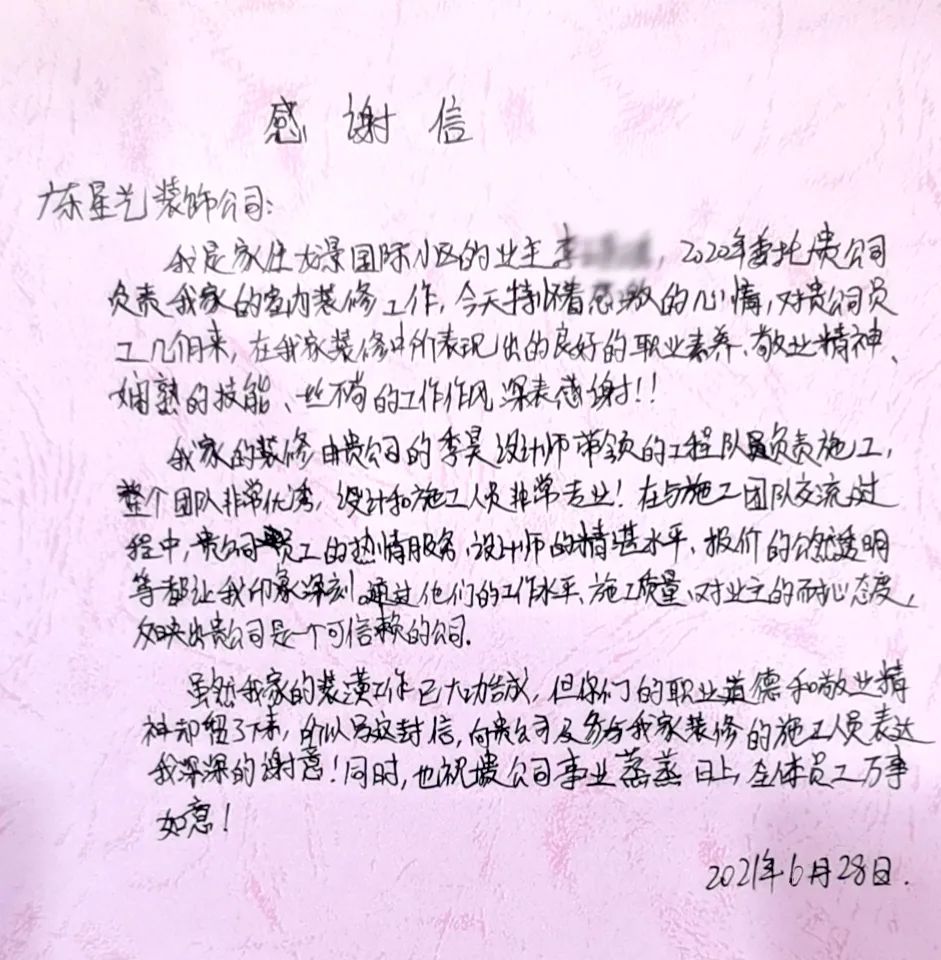 感谢信
广东星艺装饰公司:
我是家住龙景国际小区的业主李，2020年委托贵公司
负责我家的室内装修工作，今天特怀着感激的心情，对贵公司员
工几个月来，在我家装修中所表现出的良好的职业素养、敬业精神、
娴熟的技能、一丝不苟的工作作风深表感谢!!
我家的装修由贵公司的李昊设计师带领的工程队员负责施工，
整个团队非常优秀，设计和施工人员非常专业！在与施工团队交流过
程中，贵公司员工的热情服务、设计师的精湛水平、报价的公然透明
等都让我印象深刻。通过他们的工作水平、施工质量、对业主的耐心态度，
反映出贵公司是一个可信赖的公司.
虽然我家的装潢工作已大功告成，但你们的职业道德和敬业精
神却留了下来，所以写这封信，向贵公司及参与我家装修的施工人员表达
我深深的谢意！同时，也祝贵公司事业蒸蒸日上，全体员工万事
如意！
2021年6月28日.